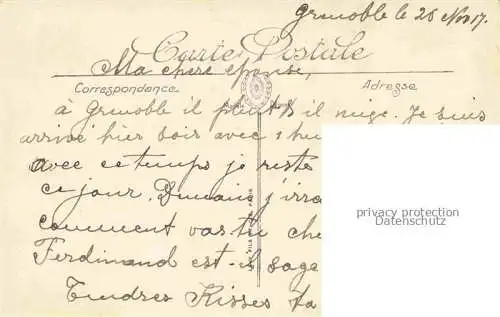 Grenoble le 26 Nov 17.
Carte Postale
Ma chère épouse,
Correspondance
Adresse
à Grenoble il pleut & il neige. Je suis
arrivé hier soir avec 1 heu
avec ce temps je restes
ce jour. Demain j'irra
comment vas tu che
privacy protection
Datenschutz
Ferdinand est-il sage
Tendres Kisses ta